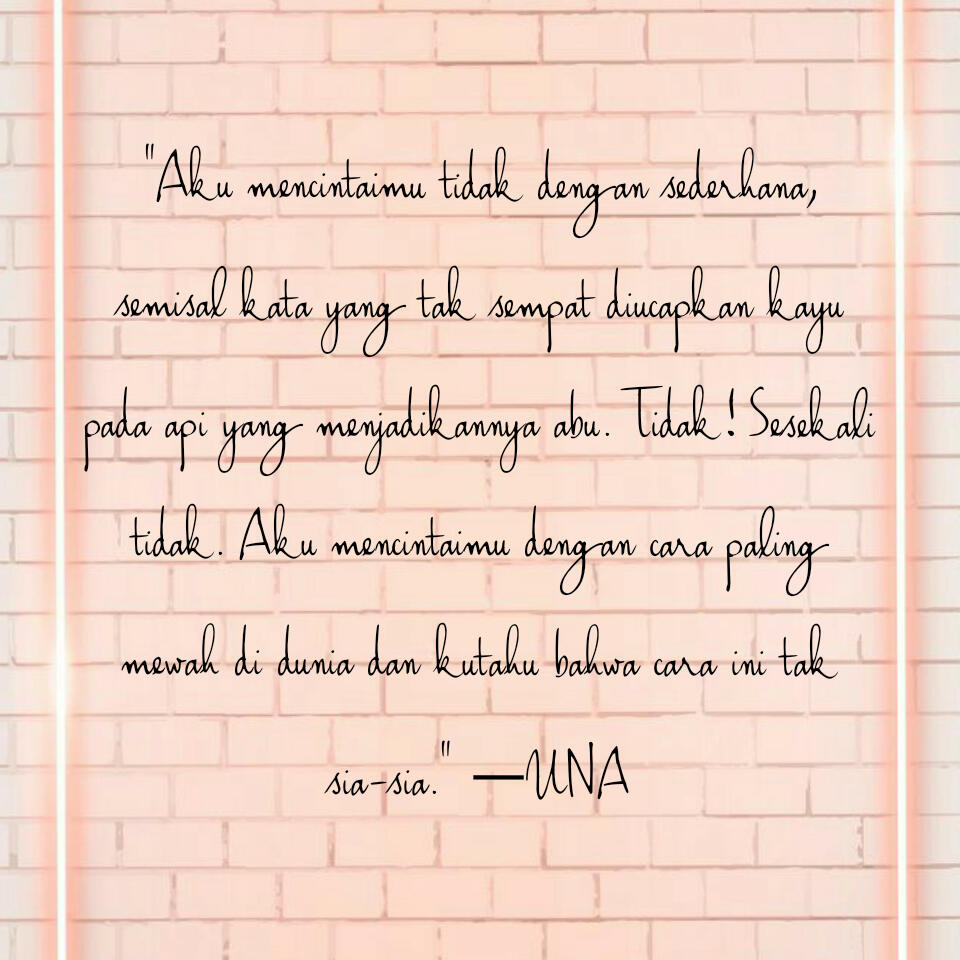 "Aku mencintaimu tidak dengan sederhana,
semisal kata yang tak sempat diucapkan kayu
pada api yang menjadikannya abu. Tidak! Sesekali
tidak. Aku mencintaimu dengan cara paling
mewah di dunia dan kutahu bahwa cara ini tak
sia-sia." —UNA